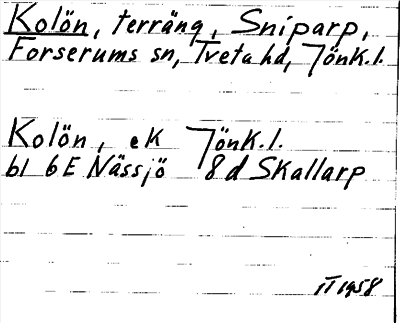 Kolön, terräng, Sniparp,
Forserums sn, Tveta hd, Jönk.l.
Kolön, ek Jönk.l.
bl 6E Nässjö 8d Skallarp
II 1958